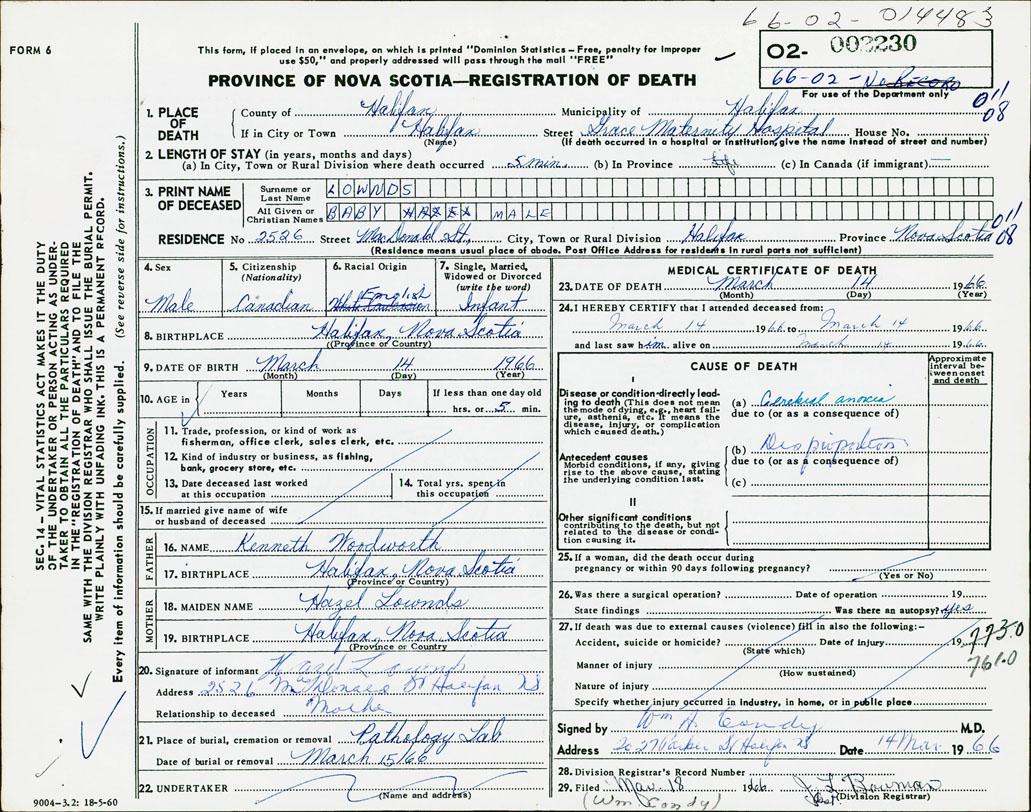 66-02-014483
FORM 6
This form, if placed in an envelope, on which is printed "Dominion Statistics – Free, penalty for improper
use $50," and properly addressed will pass through the mail "FREE"
PROVINCE OF NOVA SCOTIA—REGISTRATION OF DEATH
O2- 002230
66-02-No RECORD
For use of the Department only
011
08
1. PLACE OF DEATH
County of Halifax Municipality of Halifax
If in City or Town Halifax Street Grace Maternity Hospital House No.
(Name) (If death occurred in a hospital or institution, give the name instead of street and number)
2. LENGTH OF STAY (in years, months and days)
(a) In City, Town or Rural Division where death occurred 5 min. (b) In Province Life (c) In Canada (if immigrant)
3. PRINT NAME OF DECEASED
Surname or Last Name LOWNDS
All Given or Christian Names BABY HAZEL MALE
011
08
RESIDENCE No 2526 Street MacDonald St., City, Town or Rural Division Halifax Province Nova Scotia
(Residence means usual place of abode. Post Office Address for residents in rural parts not sufficient)
4. Sex
Male
5. Citizenship
(Nationality)
Canadian
6. Racial Origin
English
7. Single, Married,
Widowed or Divorced
(write the word)
Infant
8. BIRTHPLACE Halifax, Nova Scotia
(Province or Country)
9. DATE OF BIRTH March 14 1966
(Month) (Day) (Year)
10. AGE in Years Months Days If less than one day old
hrs. or 5 min.
OCCUPATION
11. Trade, profession, or kind of work as
fisherman, office clerk, sales clerk, etc.
12. Kind of industry or business, as fishing,
bank, grocery store, etc.
13. Date deceased last worked
at this occupation
14. Total yrs. spent in
this occupation
15. If married give name of wife
or husband of deceased
FATHER
16. NAME Kenneth Woodworth
17. BIRTHPLACE Halifax, Nova Scotia
(Province or Country)
MOTHER
18. MAIDEN NAME Hazel Lownds
19. BIRTHPLACE Halifax, Nova Scotia
(Province or Country
20. Signature of informant Hazel Lownds
Address 2526 McDonald St Halifax NS
Relationship to deceased Mother
21. Place of burial, cremation or removal Pathology Lab
Date of burial or removal March 15/66
22. UNDERTAKER
(Name and address)
MEDICAL CERTIFICATE OF DEATH
23. DATE OF DEATH March 14 1966
(Month) (Day) (Year)
24. I HEREBY CERTIFY that I attended deceased from:
March 14 1966 to March 14 1966
and last saw him alive on March 14 1966
CAUSE OF DEATH
Approximate
interval be-
tween onset
and death
I
Disease or condition directly lead-
ing to death (This does not mean
the mode of dying, e.g., heart fail-
ure, asthenia, etc. It means the
disease, injury, or complication
which caused death.)
(a) Cerebral anoxia
due to (or as a consequence of)
Antecedent causes
Morbid conditions, if any, giving
rise to the above cause, stating
the underlying condition last.
(b) Disproportion
due to (or as a consequence of)
(c)
II
Other significant conditions
contributing to the death, but not
related to the disease or condi-
tion causing it.
25. If a woman, did the death occur during
pregnancy or within 90 days following pregnancy?
(Yes or No)
26. Was there a surgical operation? Date of operation 19
State findings Was there an autopsy? yes
27. If death was due to external causes (violence) fill in also the following:–
Accident, suicide or homicide? Date of injury 19
(State which)
773.0
761.0
Manner of injury
(How sustained)
Nature of injury
Specify whether injury occurred in industry, in home, or in public place
Signed by Wm H. Condy M.D.
Address Halifax NS Date 14 Mar. 1966
28. Division Registrar's Record Number
29. Filed Mar. 18 1966 Bowman
(Division Registrar)
(Wm Condy)
SEC. 14 – VITAL STATISTICS ACT MAKES IT THE DUTY
OF THE UNDERTAKER OR PERSON ACTING AS UNDER-
TAKER TO OBTAIN ALL THE PARTICULARS REQUIRED
IN THE "REGISTRATION OF DEATH" AND TO FILE THE
SAME WITH THE DIVISION REGISTRAR WHO SHALL ISSUE THE BURIAL PERMIT.
WRITE PLAINLY WITH UNFADING INK. THIS IS A PERMANENT RECORD.
Every item of information should be carefully supplied. (See reverse side for instructions.)
9004-3.2: 18-5-60